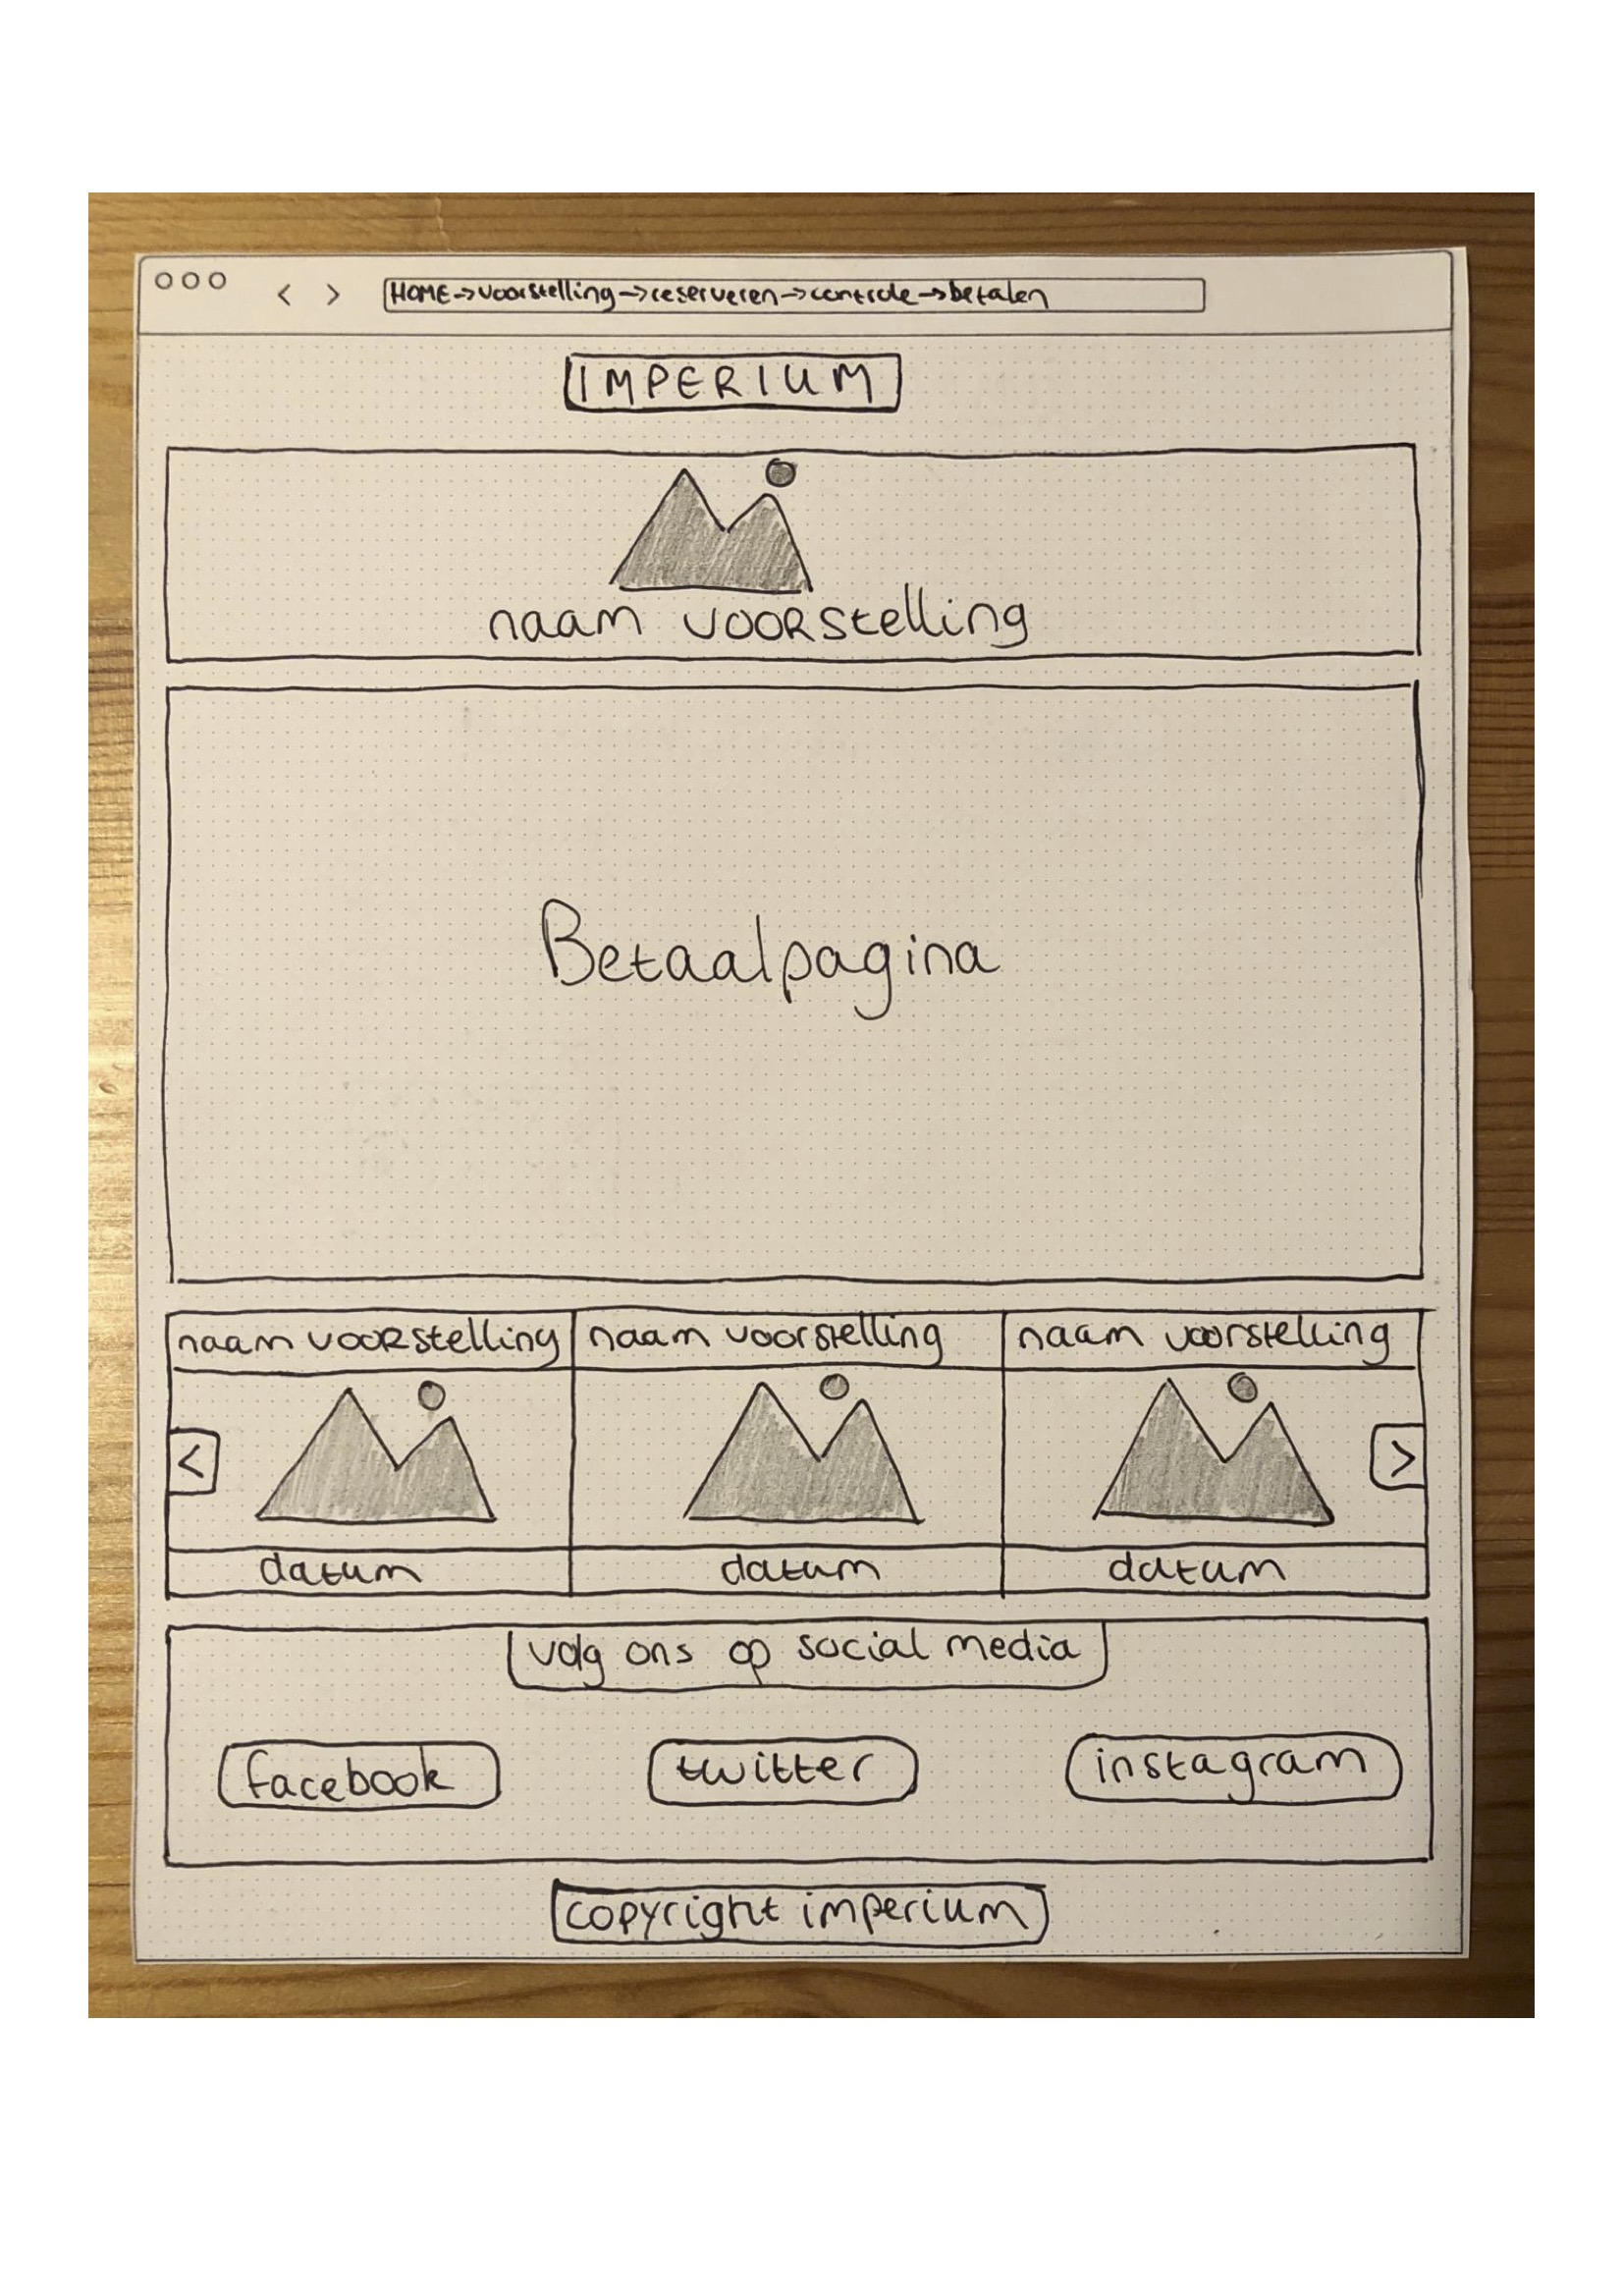 HOME->voorstelling->reserveren->controle->betalen
IMPERIUM
naam voorstelling
Betaalpagina
naam voorstelling naam voorstelling naam voorstelling
< >
datum datum datum
volg ons op social media
facebook twitter instagram
copyright imperium